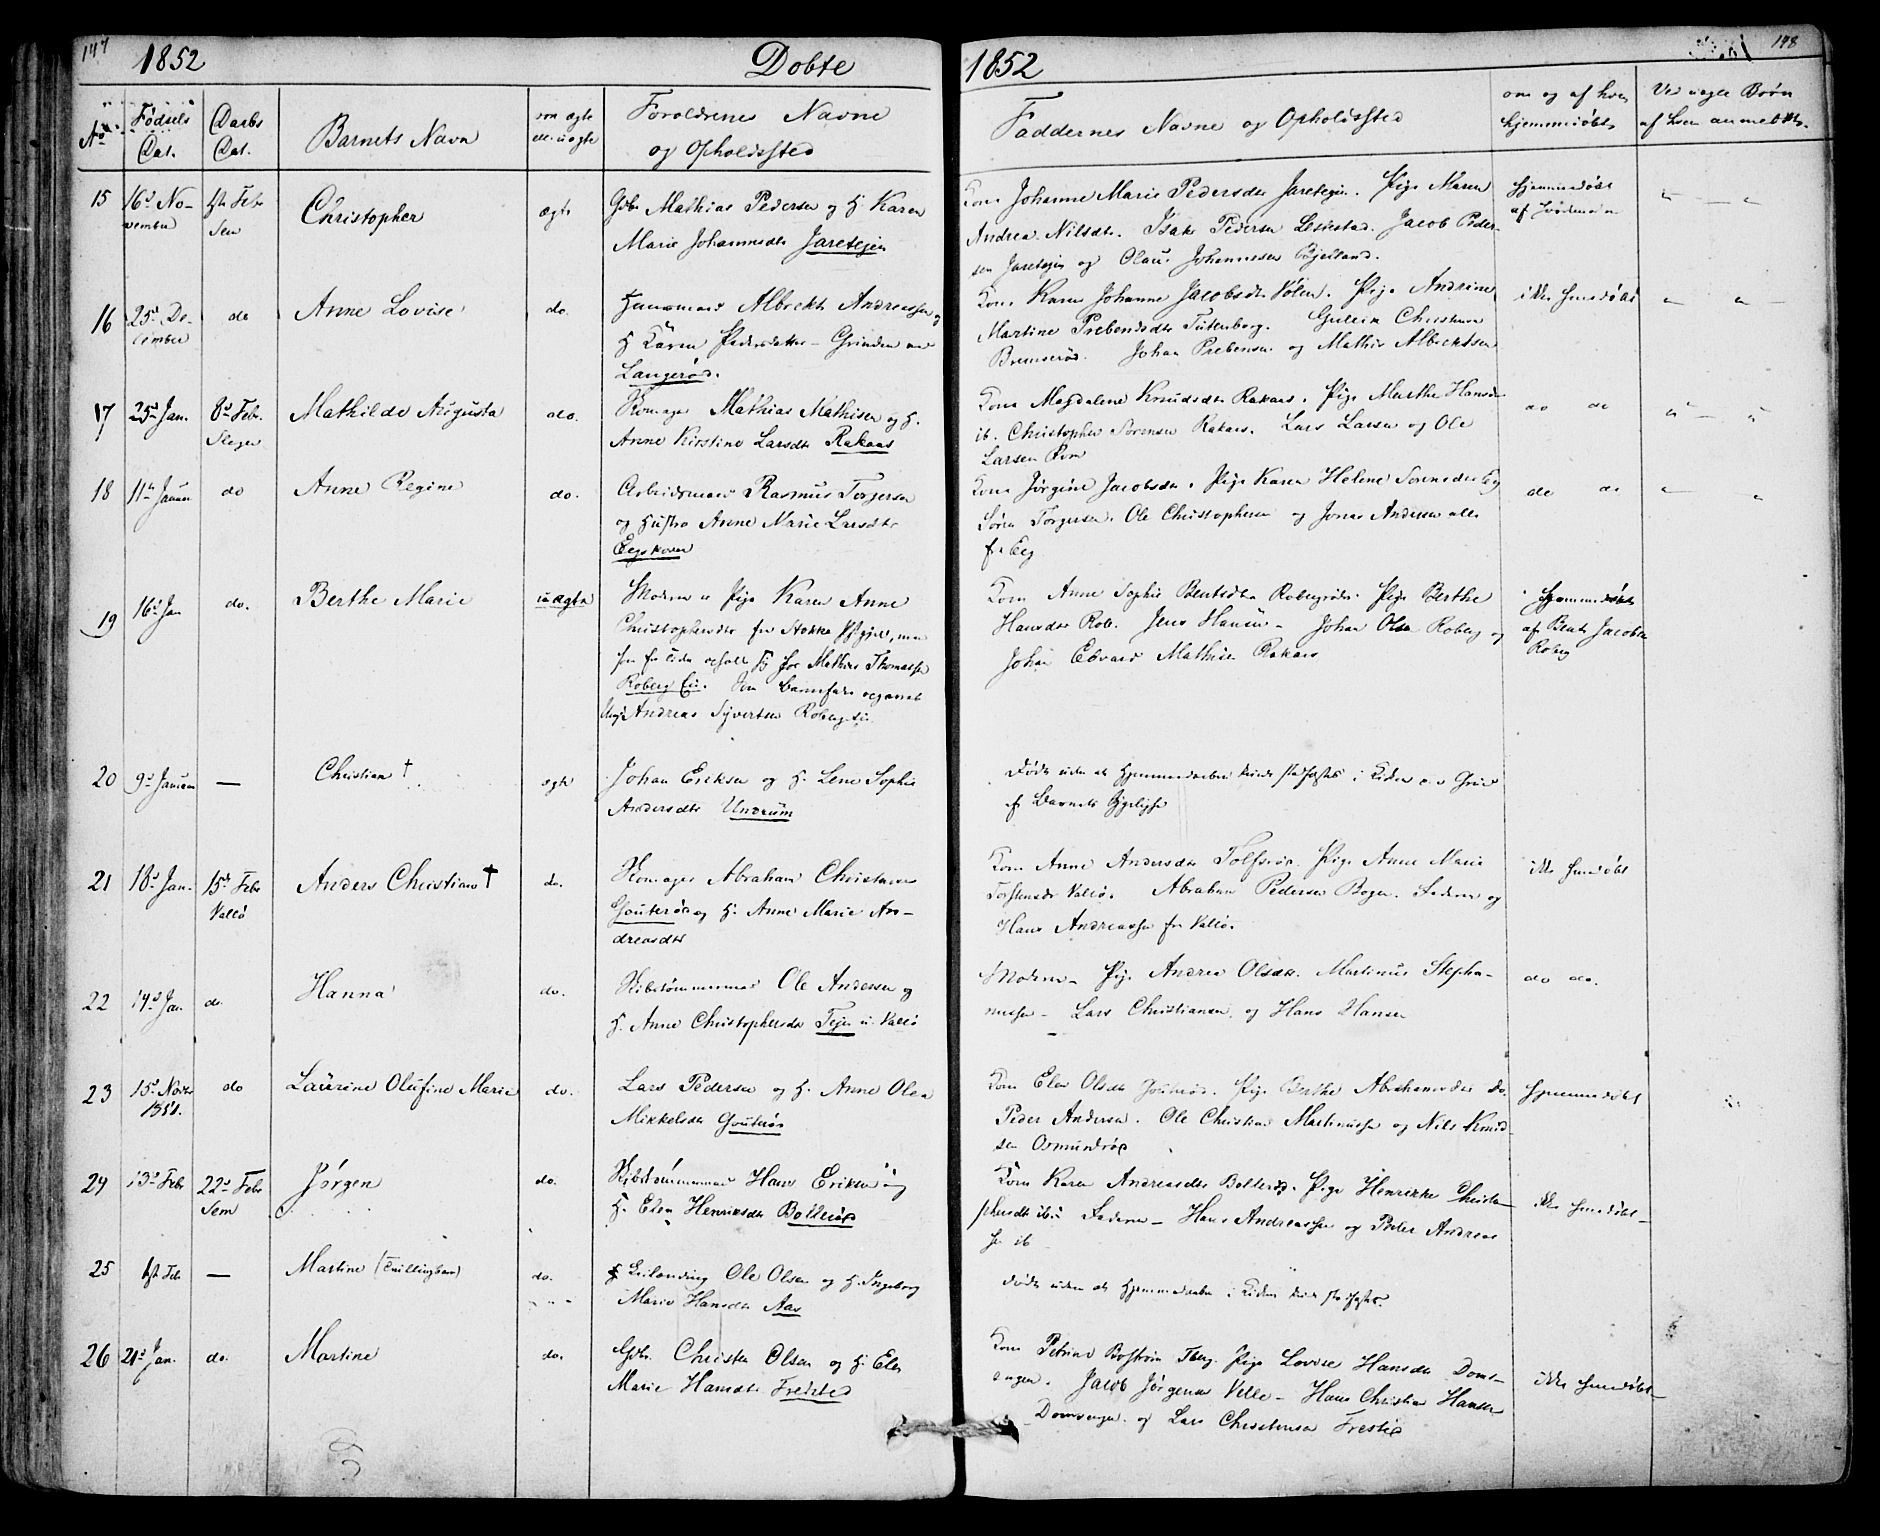 147
1852
Døbte
1852
148
No
Fødsels Dat.
Daabs Dat.
Barnets Navn
om ægte ell. uægte
Forældrenes Navne
og Opholdssted
Faddernes Navne og Opholdssted
om og af hvem
hjemmedøbt
Ved uægte Børn
af hvem anmeldt
15 16d No-
vember
Febr
Sem
Christopher
ægte
Gbr. Mathias Pedersen og H. Karen
Marie Johannesdtr Jaretejen
Kone Johanne Marie Pedersdtr Jaretejen. Pige Maren
Andrea Nilsdtr. Isak Pedersen Jacob Peder-
sen Jaretejen og Olaus Johannesen Bjelland.
hjemmedøbt
af Jordemoren
16 25d De-
cember
do
Anne Lovise
do.
Huusmand Albrekt Andreassen og
H. Karen Pedersdatter - Grinden under
Langerød.
Kone Karen Johanne Jacobsdtr Vølen. Pige Andrine
Martine Prebensdtr Tutenborg. Gullik Christensen
Bremserød. Johan Prebensen og Mathis Albrektsen
ikke hjemdøbt
17 25d Jan. 8d Febr.
Slagen
Mathilde Augusta
do.
Mathias Mathisen og H.
Anne Kirstine Larsdtr Rakaas
Kone Magdalene Knudsdtr Rakaas. Pige Marthe Hansdtr
ib. Christopher Sørensen Rakaas. Lars Larsen og Ole
Larsen
do do
18 11te Januar do
Anne Regine
do.
Arbeidsmand Rasmus Torgersen
og Hustro Anne Marie Larsdtr
Eegskoven
Kone Jørgine Jacobsdtr. Pige Karen Helene Sørensdtr Eeg
Søren Torgersen. Ole Christophersen og Jonas Andersen alle
fr. Eeg
do do
19 16d Jan do.
Berthe Marie
uægte
Moderen er Pige Karen Anne
Christophersdtr fra Stokke Pgjeld, men
for Mathias Thomassen
Roberg Eie. Som Barnefader opgivet
Ungk. Andreas Syvertsen Roberg Eie.
Kone Anne Sophie Berntsdtr Pige Berthe
Hansdtr Rob. Jens Hansen - Johan Olsen Roberg og
Johan Edvard Mathisen Rakaas
Hjemmedøbt
af Bent Jacobsen
Roberg
20 9d Januar —
Christian †
ægte
Johan Eriksen og H. Lene Sophie
Andersdtr Undrum
Døde uden at Hjemmedaaben kunde stadfæstes i Kirken paa Grund
af Barnets Sygelighed
21 18d Jan. 15d Febr
Valløe
Anders Christian †
do.
Abraham Christensen
Gouterød og H. Anne Marie An-
dreasdtr
Kone Anne Andersdtr Tolfsrød. Pige Anne Marie
Torstensdtr Valløe. Abraham Pedersen Bogen. Faderen og
Hans Andreassen fr. Valløe.
ikke hjemdøbt
22 14d Jan do.
Hanna
do.
Skibstømmermand Ole Andersen og
H. Anne Christophersdtr Tejen u. Valløe
Moderen - Pige Andrea Olsdtr. Martinus Stepha-
nussen - Lars Christiansen, og Hans Hansen
do do.
23 15d Novbr
1851.
do
Laurine Olufine Marie
do.
Lars Pedersen og H. Anne Olea
Mikkelsdtr Gouterød
Kone Elen Olsdtr Gouterød. Pige Berthe Abrahamsdtr do.
Peder Andersen. Ole Christian Martinussen og Nils Knud-
sen Osmundrød
Hjemmedøbt
24 13d Febr 22d Febr
Sem
Jørgen
do.
Skibstømmermand Hans Eriksen og
H. Elen Henriksdtr Bollerød
Kone Karen Andreasdtr Bollerød. Pige Henrikke Christo-
phersdtr ibid Faderen - Hans Andreassen og Peder Andreas-
sen ib
ikke hjemdøbt
25 Febr —
Martine (Tvillingbarn)
do.
Ole Olsen og H. Ingeborg
Marie Hansdtr Aas
Døde uden at Hjemmedaaben i Kirken kunde stadfæstes.
26 21d Jan. do.
Martine
do.
Gbr. Christen Olsen og H. Elen
Marie Hansdtr Frested
Kone Petrine Boström Tberg. Pige Lovise Hansdtr Doms-
engen. Jacob Jørgensen Velle - Hans Christian Hansen
Domsengen og Lars Christensen Frested
ikke hjemdøbt